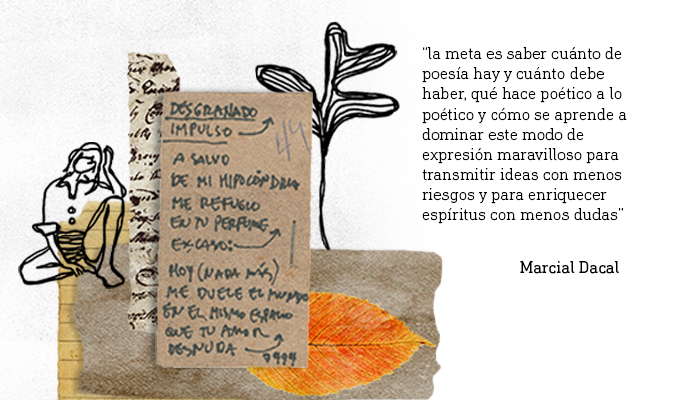 DESGRANADO
IMPULSO
44
A SALVO
DE MI HIPOCONDRIA
ME REFUGIO
EN TU PERFUME
EXCASO:
HOY (NADA MÁS)
ME DUELE EL MUNDO
EN EL MISMO ESPACIO
QUE TU AMOR
DESNUDA
"la meta es saber cuánto de
poesía hay y cuánto debe
haber, qué hace poético a lo
poético y cómo se aprende a
dominar este modo de
expresión maravilloso para
transmitir ideas con menos
riesgos y para enriquecer
espíritus con menos dudas"
Marcial Dacal